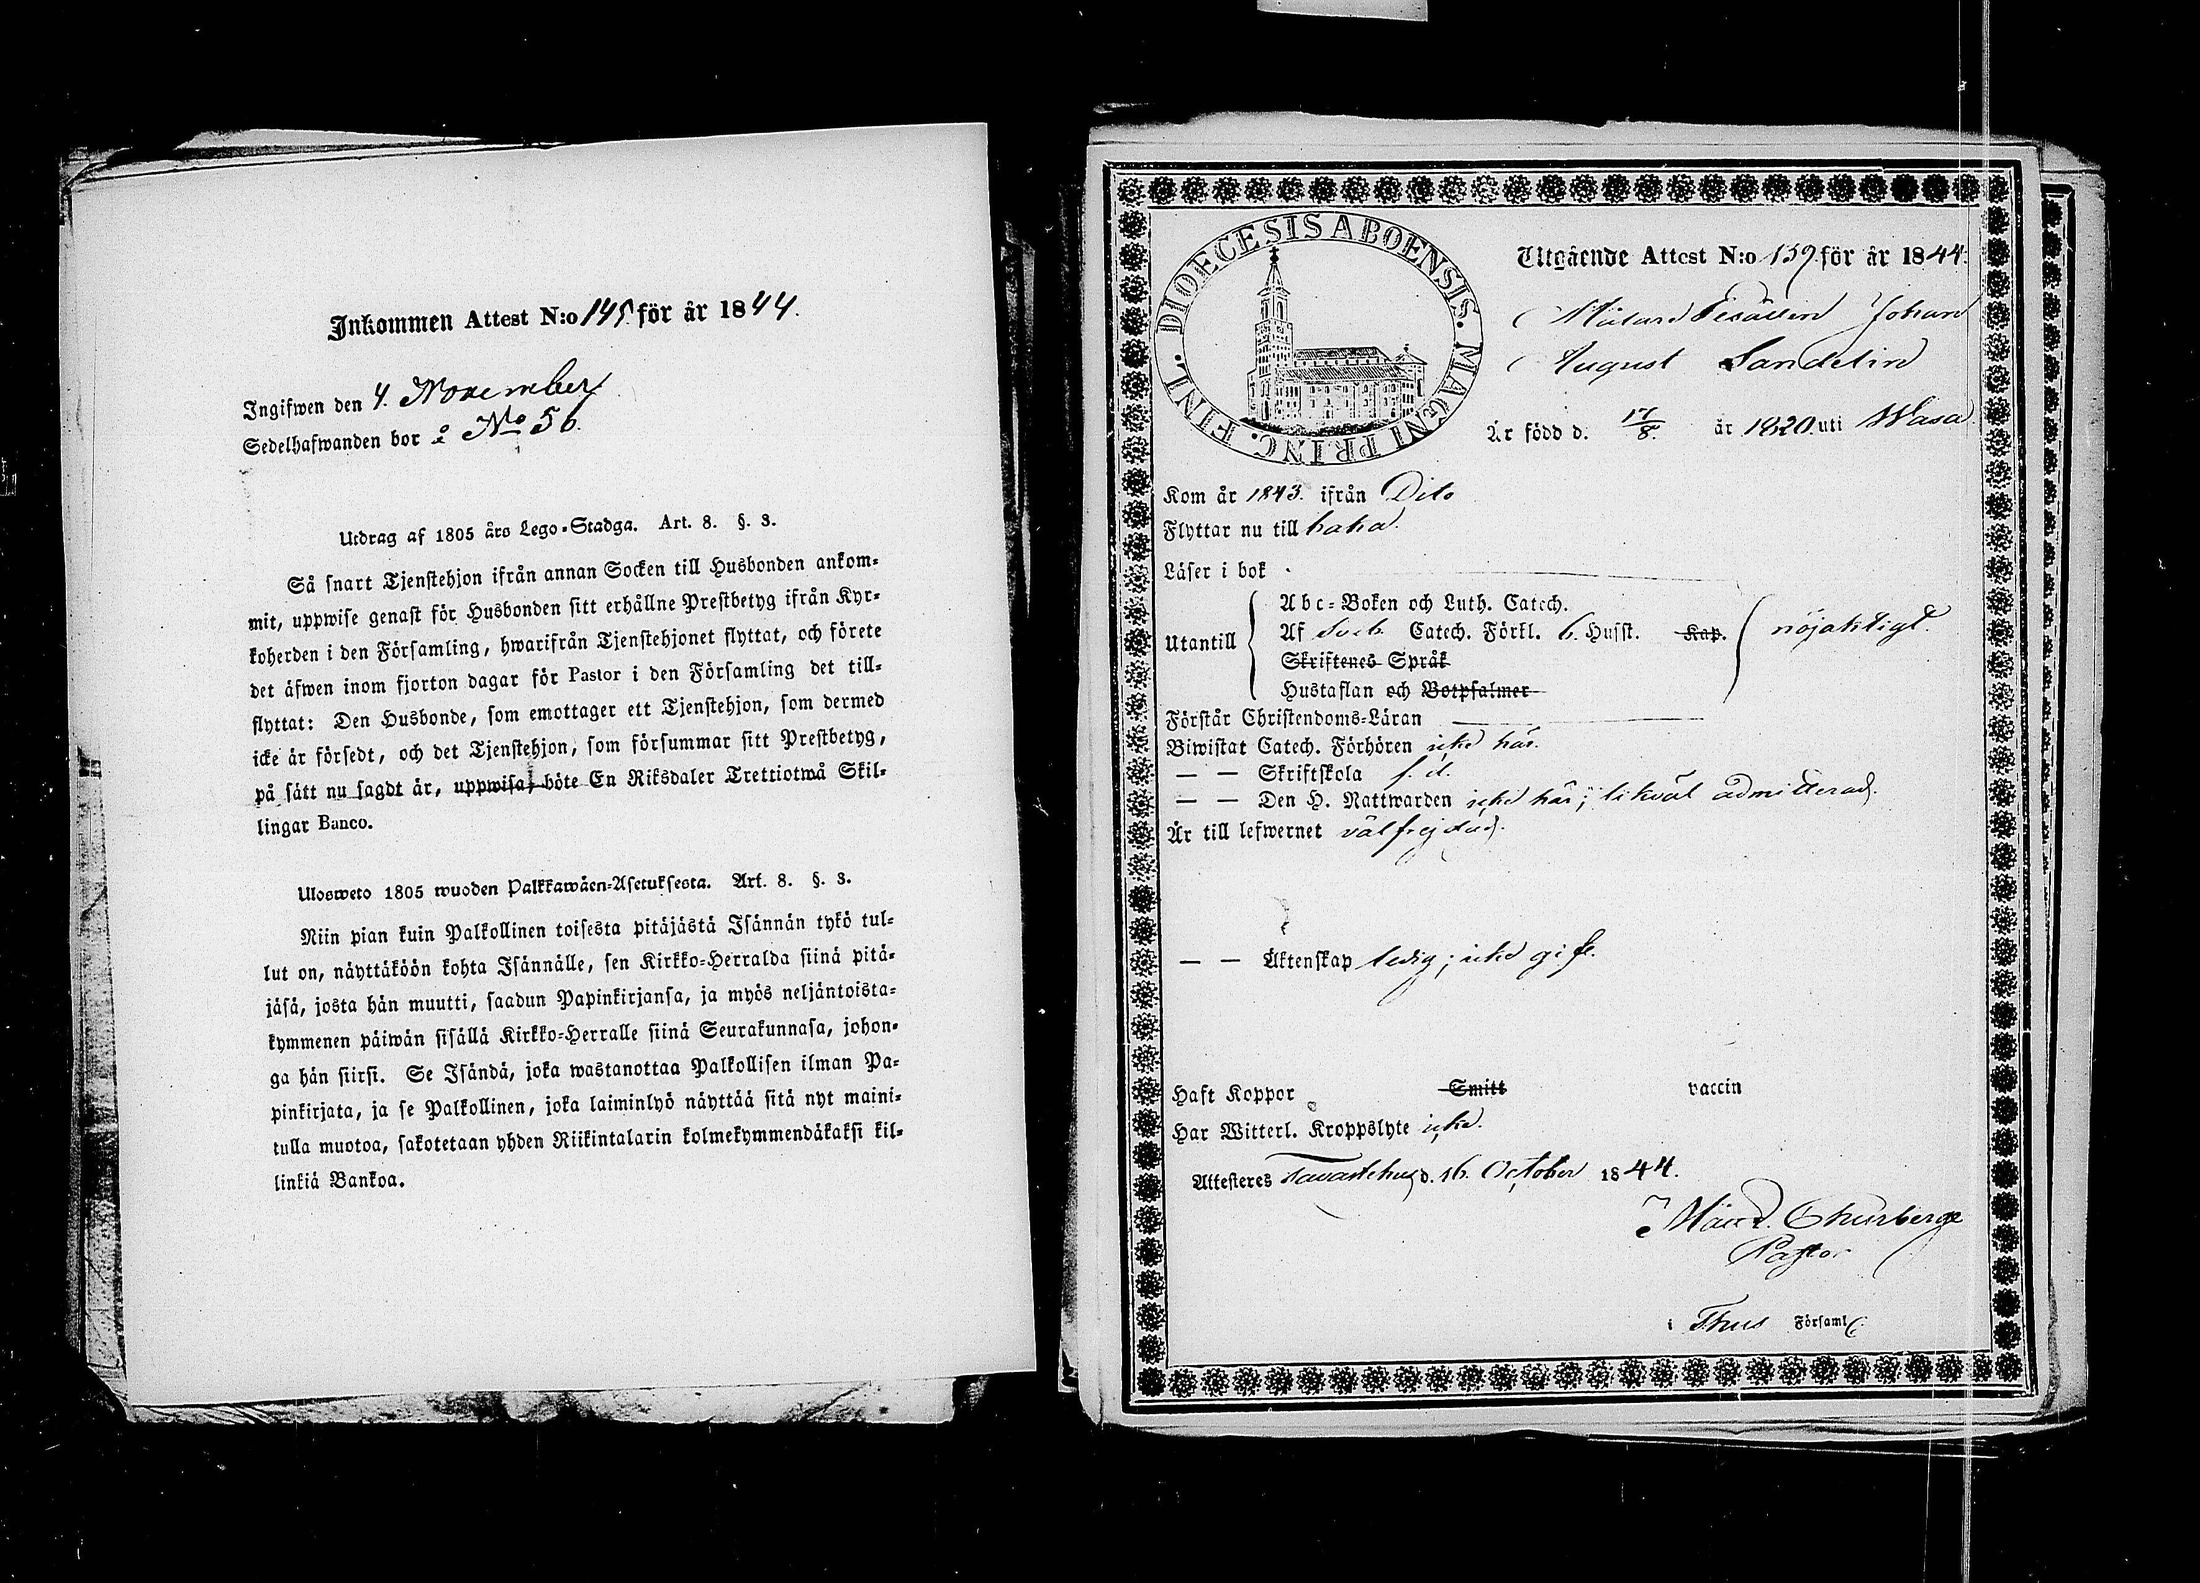 Inkommen Attest N:o 145 för år 1844.
Ingifwen den 4. November
Sedelhafwanden bor å No 56.
Utdrag af 1805 års Lego-Stadga. Art. 8. §. 3.
Så snart Tjenstehjon ifrån annan Socken till Husbonden ankom-
mit, uppwise genast för Husbonden sitt erhållne Prestbetyg ifrån Kyr-
koherden i den Församling, hwarifrån Tjenstehjonet flyttat, och förete
det äfwen inom fjorton dagar för Pastor i den Församling det till-
flyttat: Den Husbonde, som emottager ett Tjenstehjon, som dermed
icke är försedt, och det Tjenstehjon, som försummar sitt Prestbetyg,
på sätt nu sagdt är, uppwisa, böte En Riksdaler Trettiotwå Skil-
lingar Banco.
Ulosweto 1805 wuoden Palkkawäen-Asetuksesta. Art. 8. §. 3.
Niin pian kuin Palkollinen toisesta pitäjästä Isännän tykö tul-
lut on, näyttäköön kohta Isännälle, sen Kirkko-Herralda siinä pitä-
jäsä, josta hän muutti, saadun Papinkirjansa, ja myös neljäntoista-
kymmenen päiwän sisällä Kirkko-Herralle siinä Seurakunnasa, johon-
ga hän siirsi. Se Isändä, joka wastanottaa Palkollisen ilman Pa-
pinkirjata, ja se Palkollinen, joka laiminlyö näyttää sitä nyt maini-
tulla muotoa, sakotetaan yhden Riikintalarin kolmekymmendäkaksi kil-
linkiä Bankoa.
DIOECESIS ABOENSIS. MAGNI PRINC. FINL.
Utgående Attest N:o 139 för år 1844.
Målare Gesällen Johan
August Sandelin
Är född d. 17/8. år 1820. uti Wasa
Kom år 1843. ifrån Dito
Flyttar nu till
Läser i bok
Utantill
Abc-Boken och Luth. Catech.
Af Sveb. Catech. Förkl. 6. Husst. Kap. nöjaktigt.
Skriftenes Språk
Hustaflan och Botpsalmer
Förstår Christendoms-Läran
Biwistat Catech. Förhören icke här.
— — Skriftskola s. d.
— — Den H. Nattwarden icke här; likväl admitterad.
Är till lefwernet välfrejdad.
— — Äktenskap ledig; icke gift.
Haft Koppor Smitt vaccin
Har Witterl. Kroppslyte icke.
Attesteres Tavastehus d. 16. October 1844.
Churberg
Pastor
i Thus Församl.